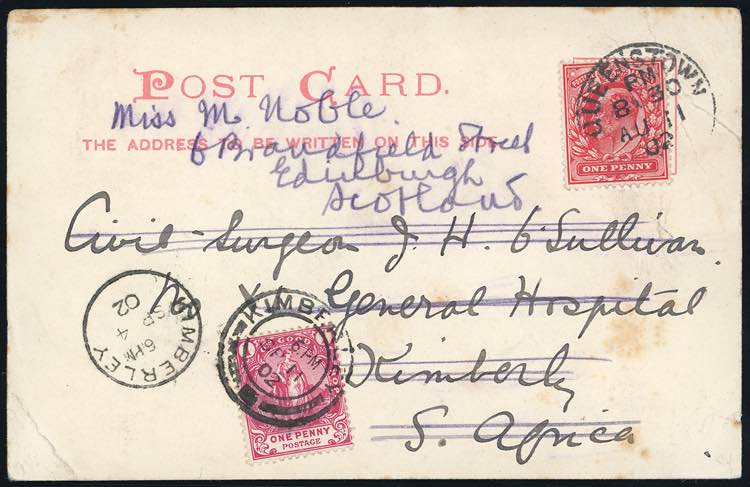 POST CARD.
Miss M. Noble.
THE ADDRESS TO BE WRITTEN ON THIS SIDE.
6 Brandfield Street
Edinburgh
Scotland
QUEENSTOWN
PM
AU 11
02
ONE PENNY
Civil-Surgeon J. H. O'Sullivan.
General Hospital
Kimberly
S. Africa
KIMBERLEY
6 PM
SP 4
02
KIMBERLEY
PM
02
ONE PENNY
POSTAGE